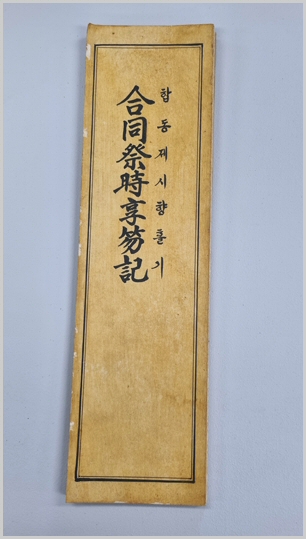 合同祭時享笏記
합동제시향홀기